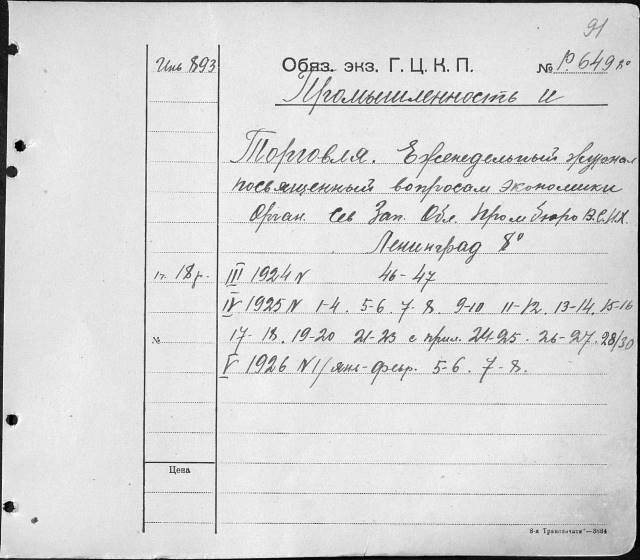 91
Инв 893
Обяз. экз. Г. Ц. К. П.
№ Р. 649
Промышленность и
Торговля. Еженедельный журнал
посвященный вопросам экономики
Орган. Сев Зап. Обл. Промбюро В.С.Н.Х.
Ленинград 8°
18 р.
III 1924 N 46-47
IV 1925 N 1-4. 5-6. 7-8. 9-10 11-12. 13-14. 15-16
№
17-18. 19-20 21-23 с прил. 24-25. 26-27. 28/30
V 1926 N 1/янв-февр. 5-6. 7-8.
Цена
8-я Транспечати"—3684